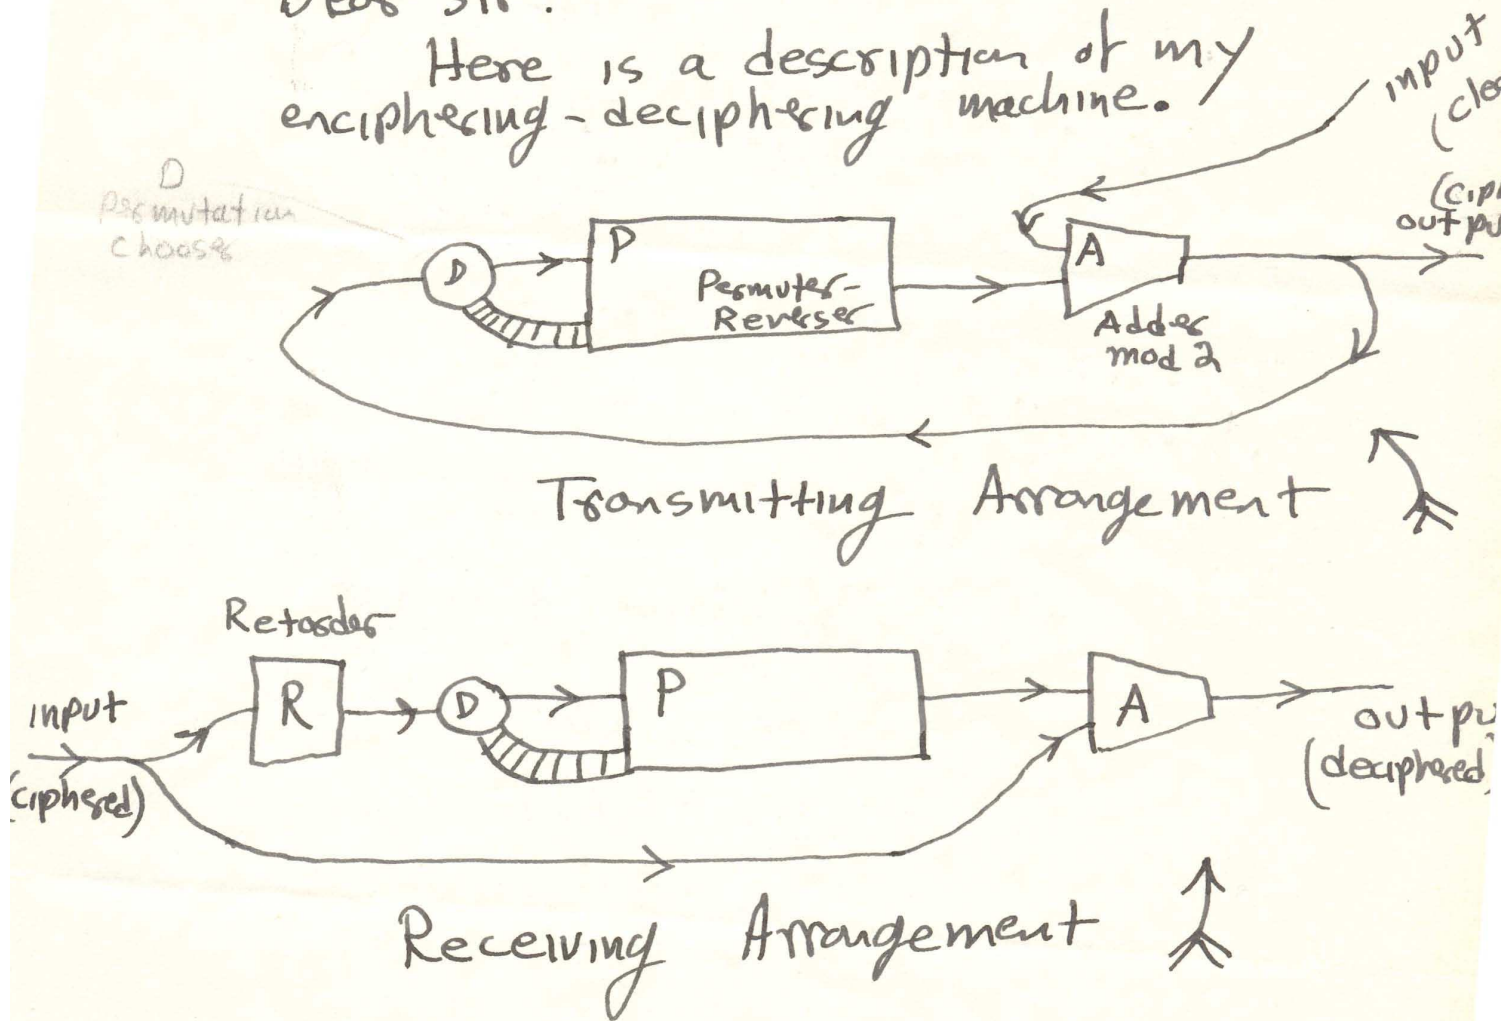 Dear Sir:
Here is a description of my
enciphering-deciphering machine.
input
D
Permutation
Chooser
D
P
Permuter-
Reverser
A
Adder
mod 2
Transmitting Arrangement
Retarder
input
(ciphered)
R
D
P
A
(deciphered)
Receiving Arrangement